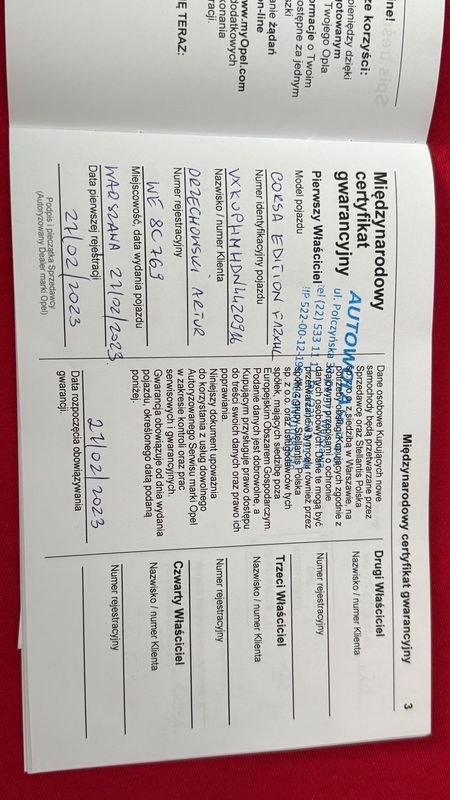 ne!
ze korzyści:
pieniędzy dzięki
gotowanym
Twojego Opla
ormacje o Twoim
ostępne za jednym
szki
anie żądań
on-line
www.myOpel.com
dodatkowych
konania
racji.
Ę TERAZ:
Międzynarodowy certyfikat gwarancyjny
3
Międzynarodowy
certyfikat
gwarancyjny
Pierwszy Właściciel
Model pojazdu
CORSA EDITION
Numer identyfikacyjny pojazdu
Nazwisko / numer Klienta
ORZECHOWSKI ARTUR
Numer rejestracyjny
WE 8C769
Miejscowość, data wydania pojazdu
WARSZAWA 21/02/2023
Data pierwszej rejestracji
21/02/2023
Podpis i pieczątka Sprzedawcy
(Autoryzowany Dealer marki Opel)
ul. Połczyńska
tel (22) 533 11
NIP 522-00-12-19
Dane osobowe Kupujących nowe
samochody będą przetwarzane przez
Sprzedawcę oraz Stellantis Polska
z siedzibą w Warszawie, na
potrzeby obsługi Kupujących zgodnie z
krajowymi przepisami o ochronie
danych osobowych. Dane te mogą być
przekazane w tym celu również przez
spółki z grupy Stellantis Polska
sp. z o.o oraz usługodawców tych
spółek, mających siedzibę poza
Europejskim Obszarem Gospodarczym.
Podanie danych jest dobrowolne, a
Kupującym przysługuje prawo dostępu
do treści swoich danych oraz prawo ich
poprawiania.
Niniejszy dokument upoważnia
do korzystania z usług dowolnego
Autoryzowanego Serwisu marki Opel
w zakresie kontroli oraz prac
serwisowych i gwarancyjnych.
Gwarancja obowiązuje od dnia wydania
pojazdu, określonego datą podaną
poniżej.
21/02/2023
Data rozpoczęcia obowiązywania
gwarancji.
Drugi Właściciel
Nazwisko / numer Klienta
Numer rejestracyjny
Trzeci Właściciel
Nazwisko / numer Klienta
Numer rejestracyjny
Czwarty Właściciel
Nazwisko / numer Klienta
Numer rejestracyjny